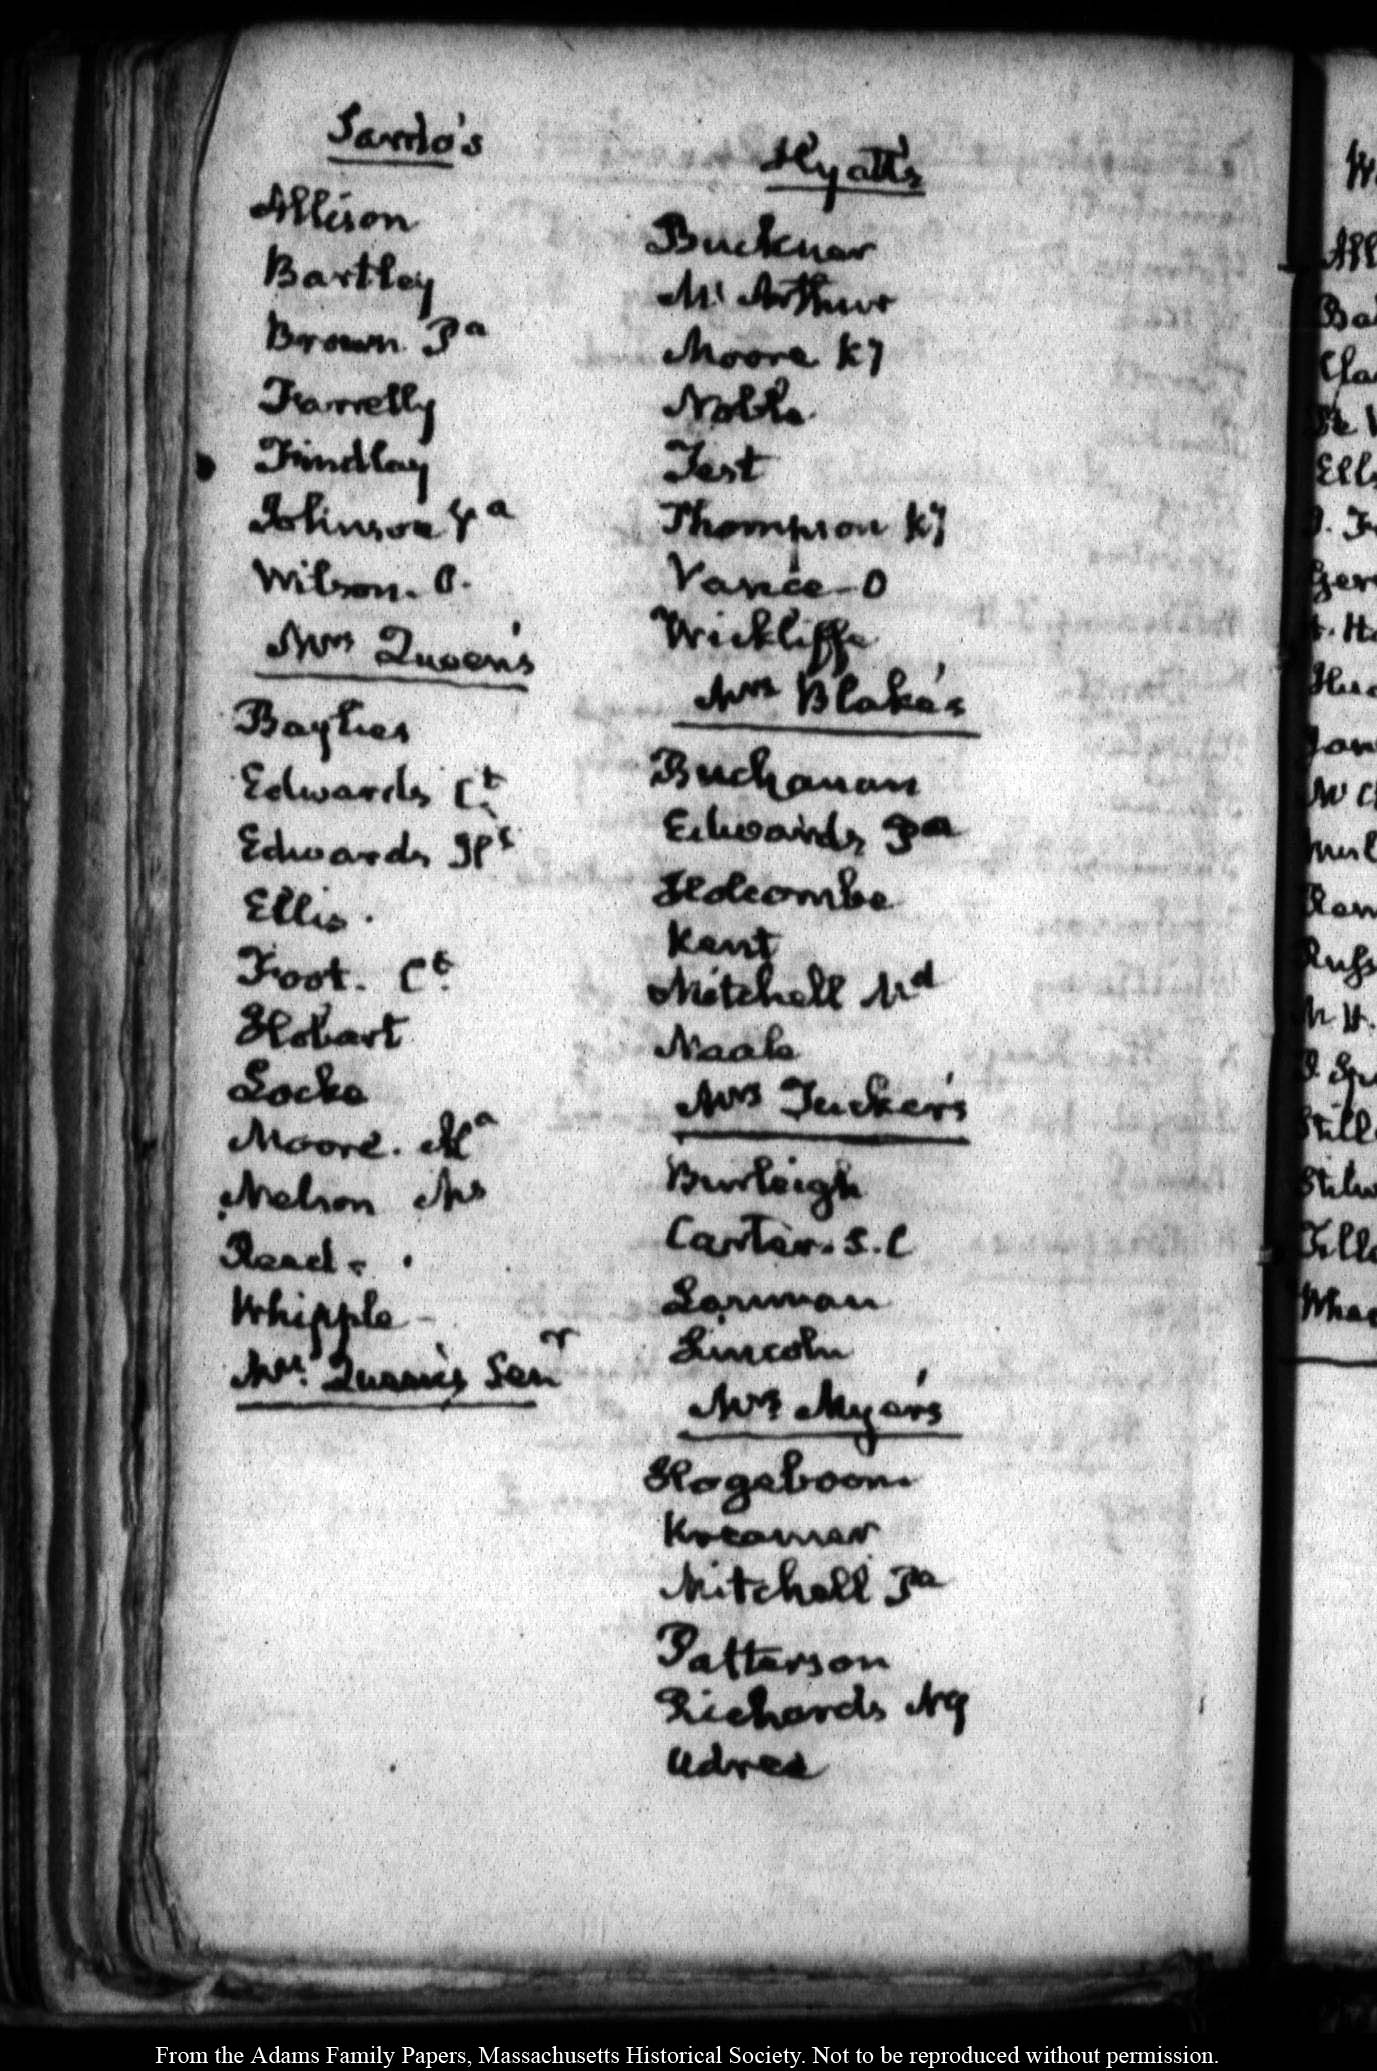 Sardo's
Allison
Bartley
Brown. Pa
Farrelly
Findlay
Johnson Va
Wilson. O.
Mrs Queen's
Baylies
Edwards Ct
Edwards
Ellis.
Foot. Ct.
Hobart
Locke
Moore. Al a
Nelson Ms
Reed
Whipple
Mrs. Queen's Senr
Hyatt's
Buckner
Mc Arthur
Moore Ky
Noble
Test
Thompson Ky
Vance O
Wickliffe
Mrs Blake's
Buchanan
Edwards Pa
Holcombe
Kent
Mitchell Md
Neale
Mrs Tucker's
Burleigh
Carter. S. C
Larman
Lincoln
Mrs Myer's
Hogeboom
Kreamer
Mitchell Pa
Patterson
Richards NY
Udree
From the Adams Family Papers, Massachusetts Historical Society. Not to be reproduced without permission.